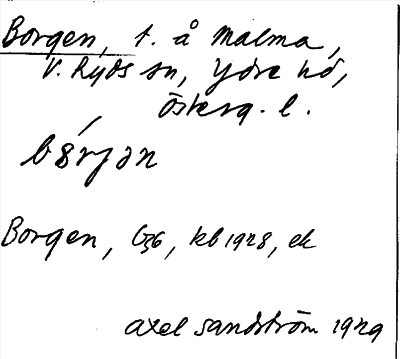 Borgen, t. å Malma,
V. Ryds sn, Ydre hd,
Österg. l.
Borgen, G36, kb 1928, ek
Axel Sandström 1929